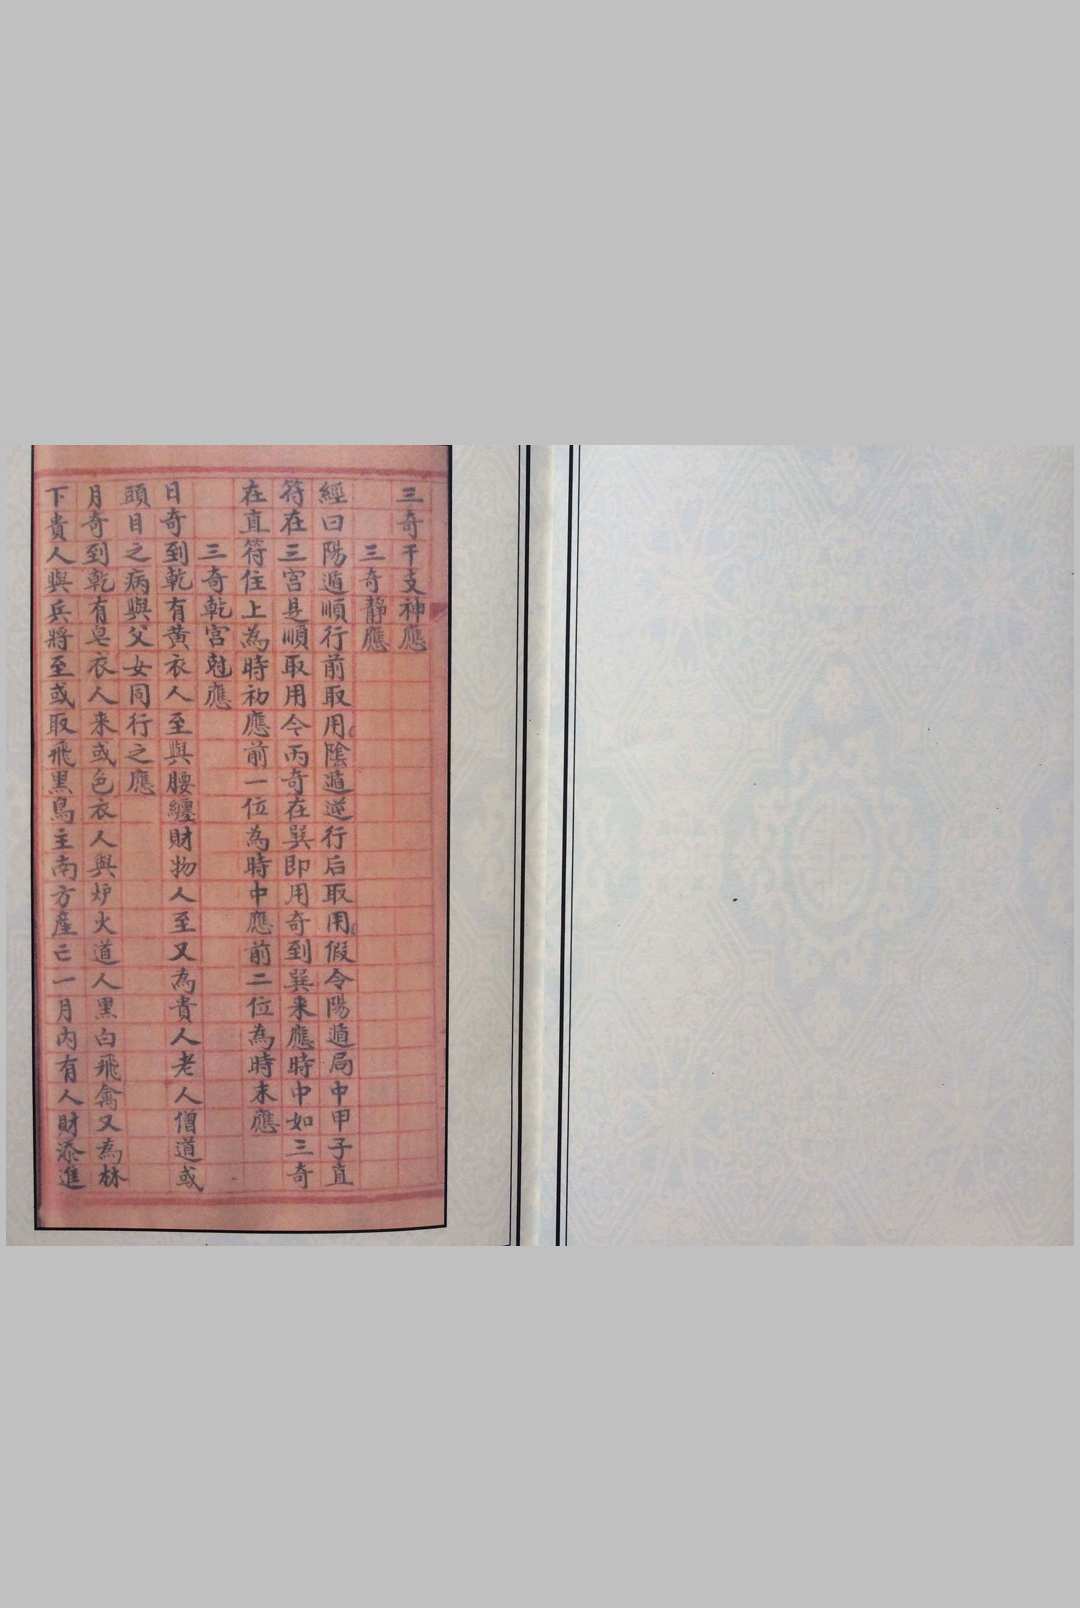 三奇干支神應
三奇靜應
經曰陽遁順行前取用陰遁逆行后取用假令陽遁局中甲子直
符在三宮是順取用令丙奇在巽即用奇到巽来應時中如三奇
在直符住上為時初應前一位為時中應前二位為時末應
三奇乾宮尅應
日奇到乾有黄衣人至與腰纏財物人至又為貴人老人僧道或
頭目之病與父女同行之應
月奇到乾有皂衣人来或色衣人與炉火道人黑白飛禽又為林
下貴人與兵將至或取飛黑鳥主南方產亡一月内有人財添進